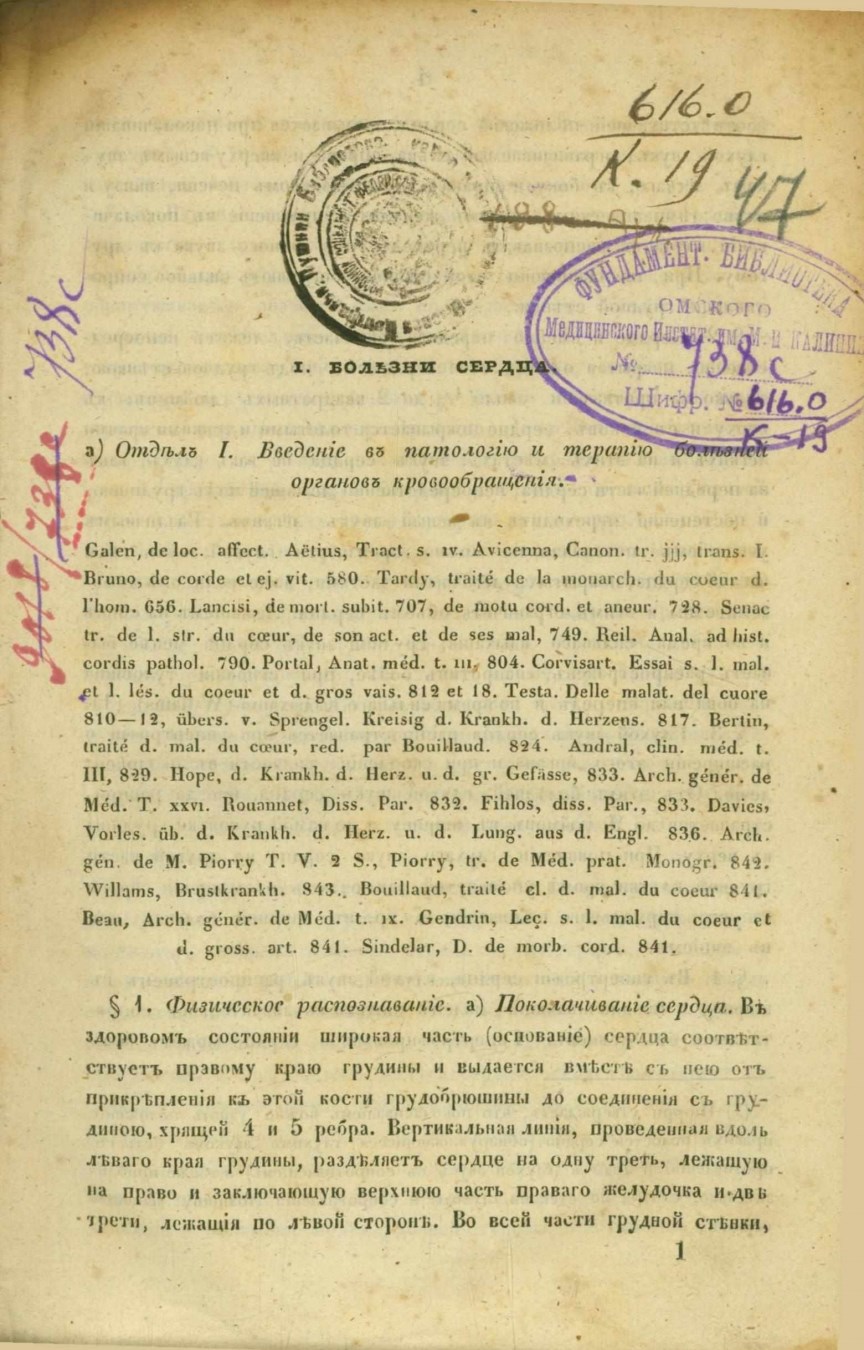 616.0
К. 19
47
ФУНДАМЕНТ. БИБЛИОТЕКА
ОМСКОГО
Медицинского Инстит. им. М. И КАЛИНИНА
№ 738с
Шифр. № 616.0
К-19
738с
I. БОЛѢЗНИ СЕРДЦА.
а) Отдѣлъ I. Введеніе въ патологію и терапію болѣзней
органовъ кровообращенія.
Galen, de loc. affect. Aëtius, Tract. s. iv. Avicenna, Canon. tr. jjj, trans. I.
Bruno, de corde et ej. vit. 580. Tardy, traité de la monarch. du coeur d.
l'hom. 656. Lancisi, de mort. subit. 707, de motu cord. et aneur. 728. Senac
tr. de l. str. du cœur, de son act. et de ses mal, 749. Reil. Anal. ad hist.
cordis pathol. 790. Portal, Anat. méd. t. III, 804. Corvisart. Essai s. l. mal.
et l. lés. du coeur et d. gros vais. 812 et 18. Testa. Delle malat. del cuore
810—12, übers. v. Sprengel. Kreisig d. Krankh. d. Herzens. 817. Bertin,
traité d. mal. du cœur, red. par Bouillaud. 824. Andral, clin. méd. t.
III, 829. Hope, d. Krankh. d. Herz. u. d. gr. Gefässe, 833. Arch. génér. de
Méd. T. xxvi. Rouannet, Diss. Par. 832. Fihlos, diss. Par., 833. Davies,
Vorles. üb. d. Krankh. d. Herz. u. d. Lung. aus d. Engl. 836. Arch.
gén. de M. Piorry T. V. 2 S., Piorry, tr. de Méd. prat. Monogr. 842.
Willams, Brustkrankh. 843. Bouillaud, traité cl. d. mal. du coeur 841.
Beau, Arch. génér. de Méd. t. ix. Gendrin, Leç. s. l. mal. du coeur et
d. gross. art. 841. Sindelar, D. de morb. cord. 841.
§ 1. Физическое распознаваніе. а) Поколачиваніе сердца. Въ
здоровомъ состояніи широкая часть (основаніе) сердца соотвѣт-
ствуетъ правому краю грудины и выдается вмѣстѣ съ нею отъ
прикрѣпленія къ этой кости грудобрюшины до соединенія съ гру-
диною, хрящей 4 и 5 ребра. Вертикальная линія, проведенная вдоль
лѣваго края грудины, раздѣляетъ сердце на одну треть, лежащую
на право и заключающую верхнюю часть праваго желудочка и двѣ
трети, лежащія по лѣвой сторонѣ. Во всей части грудной стѣнки,
1